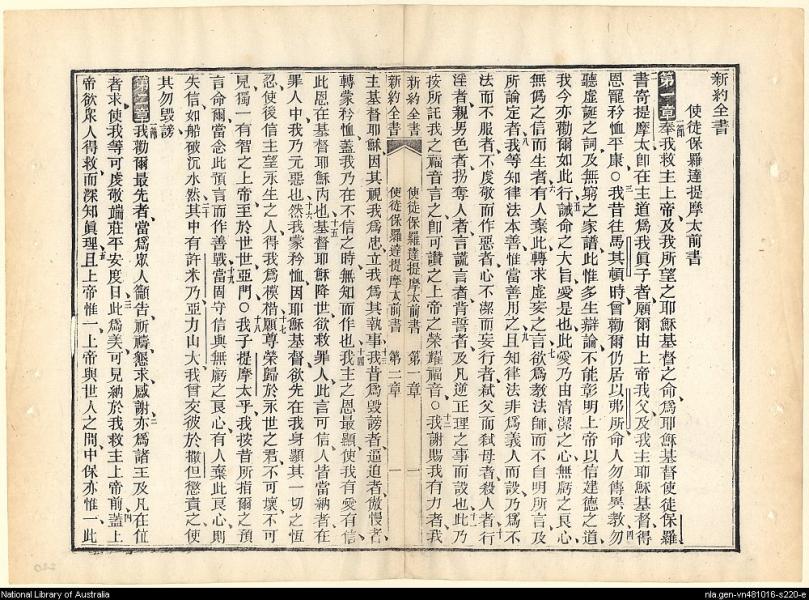 新約全書
使徒保羅達提摩太前書
第一章奉我救主上帝及我所望之耶穌基督之命爲耶穌基督使徒保羅
書寄提摩太卽在主道爲我眞子者願爾由上帝我父及我主耶穌基督得
恩寵矜恤平康○我昔往馬其頓時曾勸爾仍居以弗所命人勿傳異教勿
聽虛誕之詞及無窮之家譜此惟多生辯論不能彰明上帝以信建德之道
我今亦勸爾如此行誡命之大旨愛是也此愛乃由清潔之心無虧之良心
無僞之信而生者有人棄此轉求虛妄之言欲爲教法師而不自明所言及
所論定者我等知律法本善惟當善用之且知律法非爲義人而設乃爲不
法而不服者不度敬而作惡者心不潔而妄行者弑父而弑母者殺人者行
淫者親男色者拐奪人者言謊言者肯誓者及凡逆正理之事而設也此乃
按所託我之福音言之卽可讚之上帝之榮耀福音○我謝賜我有力者我
新約全書 使徒保羅達提摩太前書 第一章 一
新約全書 使徒保羅達提摩太前書 第二章 一
主基督耶穌因其視我爲忠立我爲其執事我昔爲毀謗者逼迫者傲慢者
轉蒙矜恤蓋我乃在不信之時無知而作也我主之恩最顯使我有愛有信
此恩在基督耶穌內也基督耶穌降世欲救罪人此言可信人皆當納者在
罪人中我乃元惡也然我蒙矜恤因耶穌基督欲先在我身顯其一切之恆
忍使後信主望永生之人得我爲模楷願尊榮歸於永世之君不可壞不可
見獨一有智之上帝至於世世亞門○我子提摩太乎我按昔所指爾之預
言命爾當念此預言而作善戰當固守信與無虧之良心有人棄此良心則
失信如船破沉水然其中有許米乃亞力山大我曾交彼於撒但懲責之使
其勿毀謗
第二章我勸爾最先者當爲眾人籲告祈禱懇求感謝亦爲諸王及凡在位
者求使我等可虔敬端莊平安度日此爲美可見納於我救主上帝前蓋上
帝欲眾人得救而深知眞理且上帝惟一上帝與世人之間中保亦惟一此
National Library of Australia
nla.gen-vn481016-s220-e